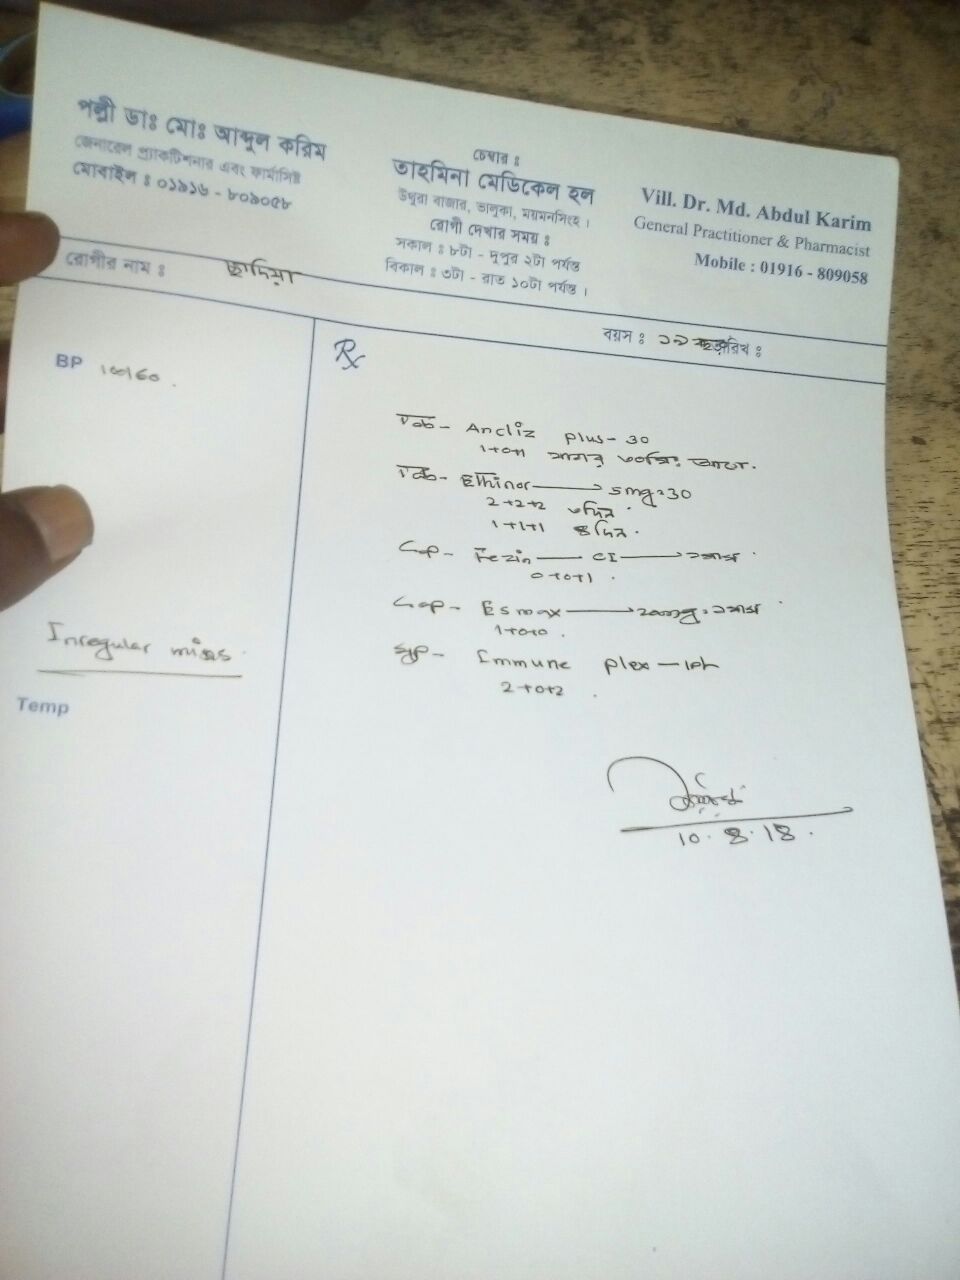 পল্লী ডাঃ মোঃ আব্দুল করিম
জেনারেল প্র্যাকটিশনার এবং ফার্মাসিষ্ট
মোবাইল : ০১৯১৬ - ৮০৯০৫৮
চেম্বার :
তাহমিনা মেডিকেল হল
উথুরা বাজার, ভালুকা, ময়মনসিংহ।
রোগী দেখার সময় :
সকাল : ৮টা - দুপুর ২টা পর্যন্ত
বিকাল : ৩টা - রাত ১০টা পর্যন্ত।
Vill. Dr. Md. Abdul Karim
General Practitioner & Pharmacist
Mobile : 01916 - 809058
রোগীর নাম : ছাদিয়া
বয়স : ১৯ তারিখ :
BP
Irregular
Temp
Rx
Tab - Ancliz Plus - 30
1+0+1
Tab - Ethinor 5mg = 30
2+2+2 ৩দিন
1+1+1 ৪দিন.
Cap - Fezin - CI
0+0+1.
Cap - Esmax
1+0+0.
Syp - Immune plex - 1ph
2+0+2.
10.8.18.